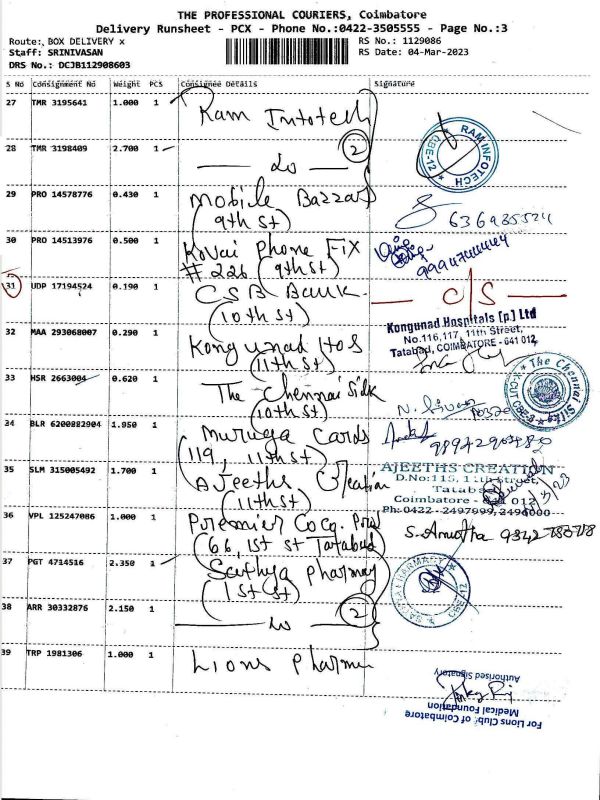 THE PROFESSIONAL COURIERS, Coimbatore
Delivery Runsheet - PCX - Phone No.:0422-3505555 - Page No.:3
Route: BOX DELIVERY x RS No.: 1129086
Staff: SRINIVASAN RS Date: 04-Mar-2023
DRS No.: DCJB112908603
S No Consignment No Weight PCS Consignee Details Signature
27 TMR 3195641 1.000 1 Ram Infotech
28 TMR 3198409 2.700 1 — do — 2
RAM INFOTECH
CBE-12
29 PRO 14578776 0.430 1 Mobile Bazzar
(9th st)
30 PRO 14513976 0.500 1 Kovai Phone Fix
# 226 (9th st)
31 UDP 17194524 0.190 1 CSB Bank
(10th st)
C/S
32 MAA 293068007 0.290 1 Kongunad Hos
(11th st)
Kongunad Hospitals [p] Ltd
No.116,117, 11th Street,
Tatabad, COIMBATORE - 641 012
33 HSR 2663004 0.620 1 The Chennai Silk
(10th st)
The Chennai Silks
34 BLR 6200882904 1.950 1 Muruga Cards
(119, 11th st)
35 SLM 315005492 1.700 1 Ajeeths Creation
(11th st)
AJEETHS CREATION
D.No:115, 11th Street,
Tatabad
Coimbatore - 641 012
Ph: 0422 - 2497999, 2496000
36 VPL 125247086 1.000 1 Premier Cocg. Pro
(66, 1st st Tatabad
S. Amutha
37 PGT 4714516 2.350 1 Sathya Pharmacy
(1st st)
38 ARR 30332876 2.150 1 — do — 2
39 TRP 1981306 1.000 1 Lions Pharm
For Lions Club of Coimbatore
Medical Foundation
Authorised Signatory